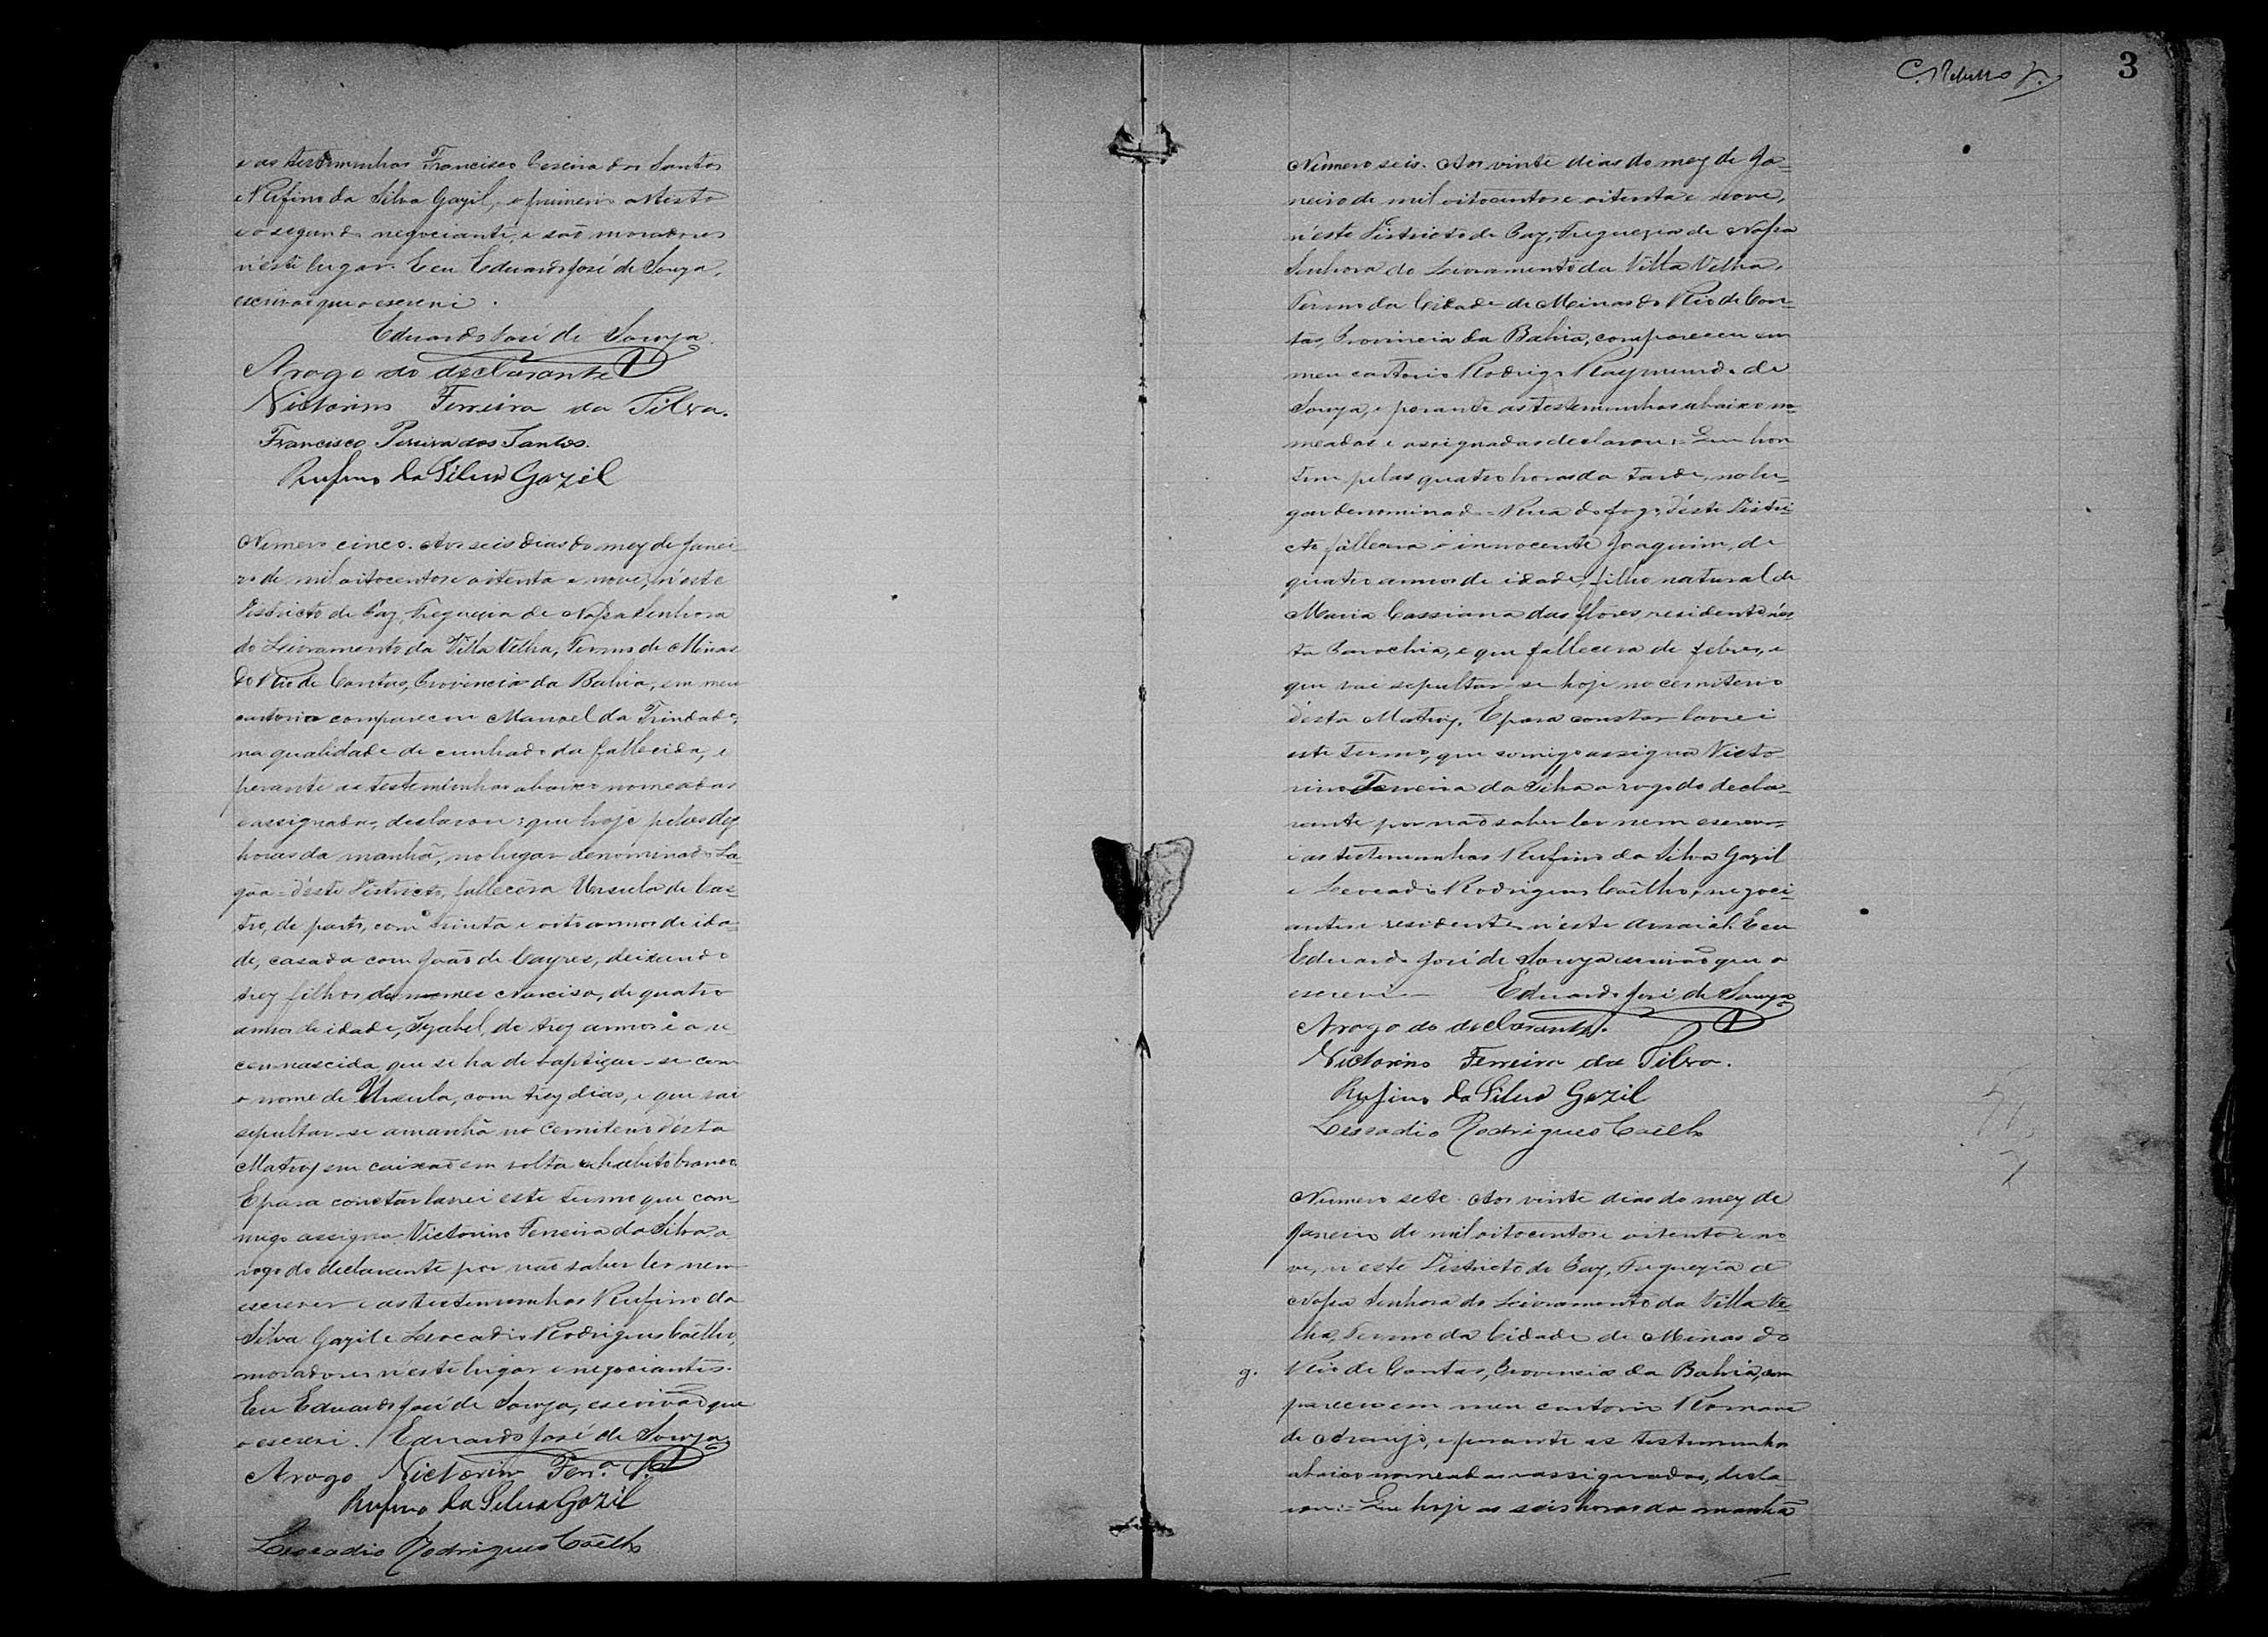 e as testemunhas Francisco Pereira dos Santos
e Rufino da Silva Gazil, o primeiro artista
e o segundo negociante, e são moradores
n'este lugar. E eu Eduardo José de Souza,
escrivão que o escrevi.
Eduardo José de Souza
A rogo do declarante
Victorino Ferreira da Silva.
Francisco Pereira dos Santos.
Rufino da Silva Gazil
Numero cinco. Aos seis dias do mez de Janei-
ro de mil oitocentos e oitenta e nove, n'este
Districto de Paz, Freguezia de Nossa Senhora
do Livramento da Villa Velha, Termo de Minas
do Rio de Contas, Provincia da Bahia, em meu
cartorio compareceu Manoel da Trindade,
na qualidade de cunhado da fallecida, e
perante as testemunhas abaixo nomeadas
e assignadas, declarou: que hoje pelas dez
horas da manhã, no lugar denominado La-
gôa - d'este Districto, fallecêra Ursula de Cas-
tro, de parto, com trinta e oito annos de ida-
de, casada com João de Cayres, deixando
trez filhos de nomes Narciso, de quatro
annos de idade, Izabel, de trez annos e a re
cem nascida, que se ha de baptizar-se com
o nome de Ursula, com trez dias, e que vai
sepultar-se amanhã no Cemiterio d'esta
Matriz em caixão em volta habito branco
E para constar lavrei este termo que com-
migo assigna Victorino Ferreira da Silva a
rogo do declarante por não saber ler nem
escrever e as testemunhas Rufino da
Silva Gazil e Leocadio Rodrigues Coêlho,
moradores n'este lugar e negociantes.
Eu Eduardo José de Souza, escrivão que
o escrevi. Eduardo José de Souza
A rogo Victorino Ferr.a S.a
Rufino da Silva Gazil
Leocadio Rodrigues Coêlho
3
Numero seis. Aos vinte dias do mez de Ja-
neiro de mil oitocentos e oitenta e nove,
n'este Districto de Paz, Freguezia de Nossa
Senhora do Livramento da Villa Velha,
Termo da Cidade de Minas do Rio de Con-
tas, Provincia da Bahia, compareceu em
meu cartorio Rodrigo Raymundo de
Souza, e perante as testemunhas abaixo no-
meadas e assignadas declarou: Que hon
tem pelas quatro horas da tarde, no lu-
gar denominado - Rua do fogo, d'este Distri-
cto fallecêra o innocente Joaquim, de
quatro annos de idade, filho natural de
Maria Cassiana das flôres residente n'es
ta Parochia, e que fallecera de febres, e
que vai sepultar-se hoje no cemiterio
d'esta Matriz. E para constar lavrei
este termo, que comigo assigna Victo-
rino Ferreira da Silva a rogo do decla-
rante por não saber ler nem escrever,
e as testemunhas Rufino da Silva Gazil
e Leocadio Rodrigues Coêlho, negoci-
antes e residentes n'este arraial. E eu
Eduardo José de Souza escrivão que o
escrevi— Eduardo José de Souza
A rogo do declarante.
Victorino Ferreira da Silva.
Rufino da Silva Gazil
Leocadio Rodrigues Coêlho
Numero sete. Aos vinte dias do mez de
Janeiro de mil oitocentos e oitenta e no
ve, n'este Districto de Paz, Freguezia de
Nossa Senhora do Livramento da Villa Ve-
lha, Termo da Cidade de Minas do
g. Rio de Contas, Provincia da Bahia, com
pareceu em meu cartorio Romana
de Araujo, e perante as testemunhas
abaixo nomeadas e assignadas, decla-
rou:= Que hoje as seis horas da manhã